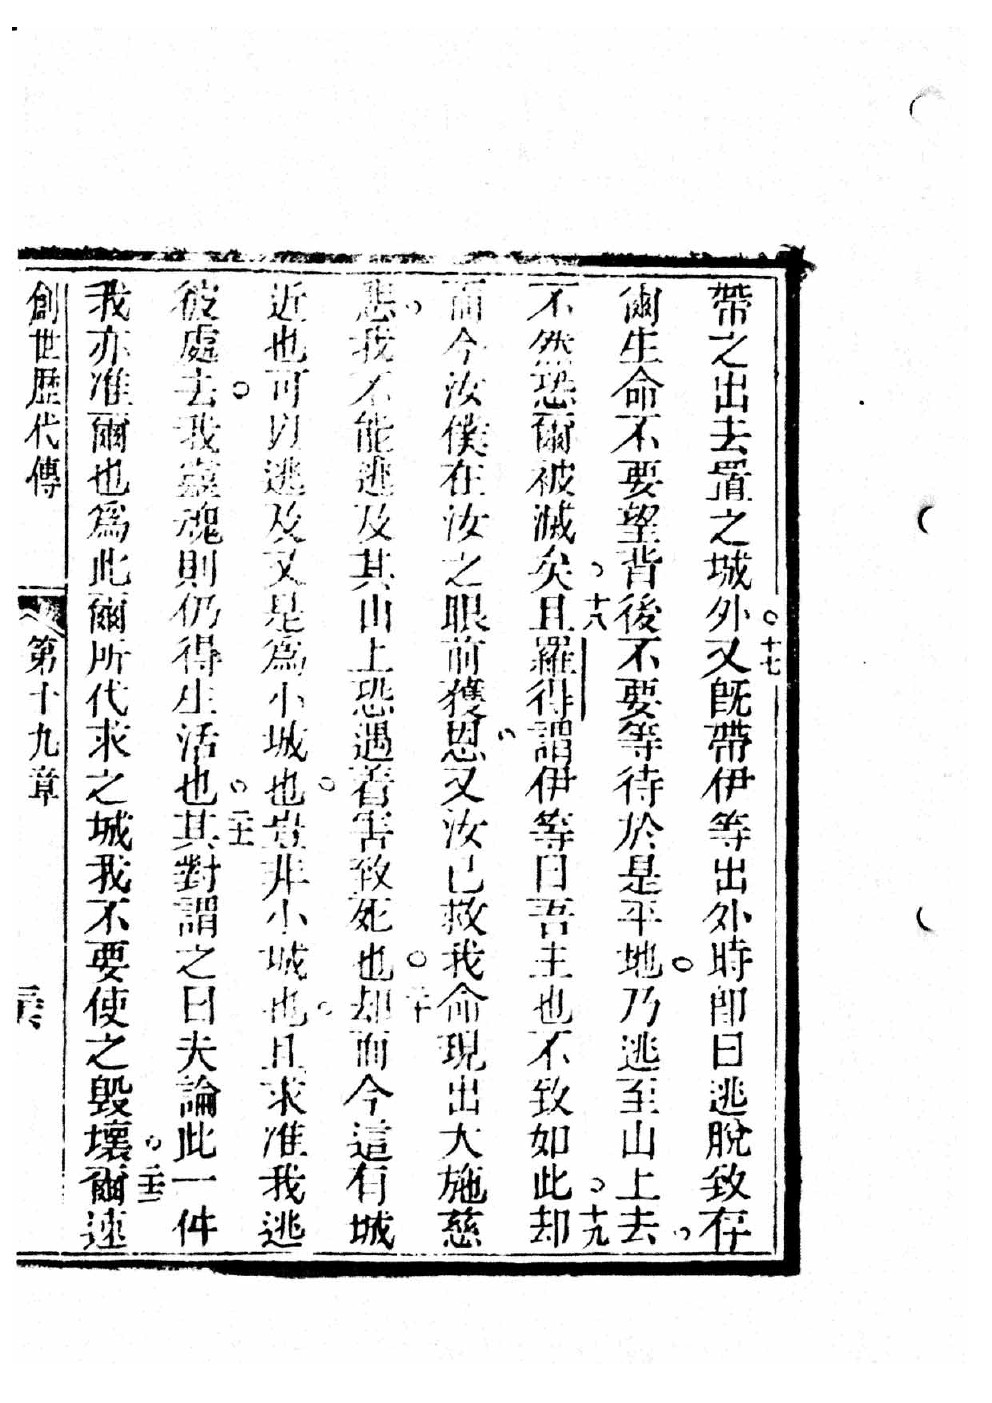 帶之出去置之城外○十七又旣帶伊等出外時卽曰逃脫致存
爾生命不要望背後不要等待於是平地○乃逃至山上去
不然恐爾被滅矣十八且羅得謂伊等曰吾主也不致如此十九却
而今汝僕在汝之眼前獲恩又汝已救我命現出大施慈
悲我不能逃及其山上恐遇着害致死也○二十却而今這有城
近也可以逃及又是爲小城也豈非小城也且求准我逃
彼處去○我靈魂則仍得生活也二十一其對謂之曰夫論此一件
我亦准爾也爲此爾所代求之城我不要使之毀壞二十二爾速
創世歷代傳 第十九章